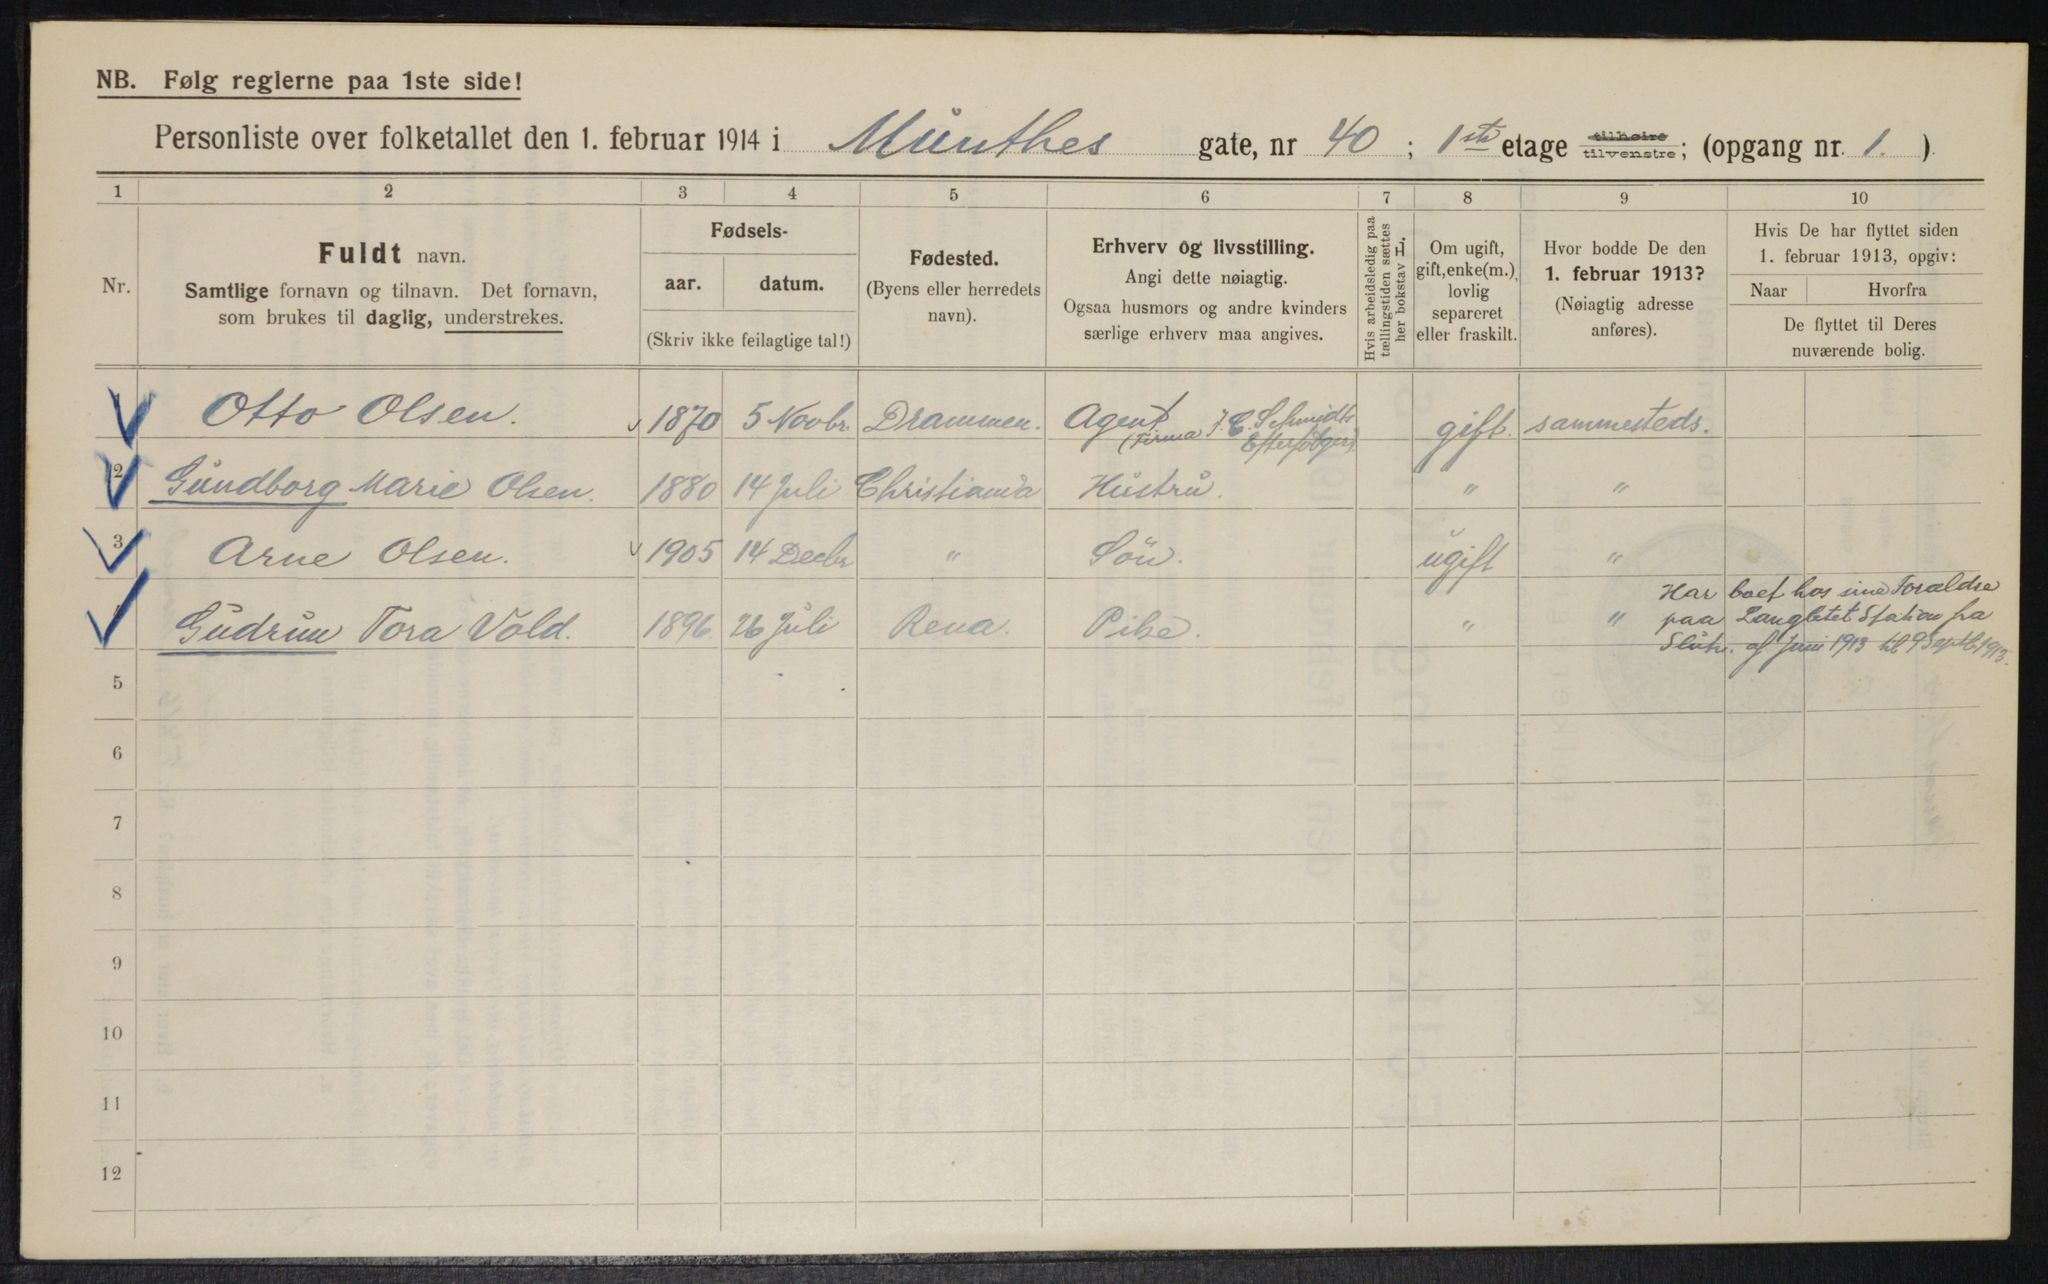 NB. Følg reglerne paa 1ste side!
Personliste over folketallet den 1. februar 1914 i Münthes gate, nr 40; 1ste etage tilhøire tilvenstre; (opgang nr. 1.)
1 2 3 4 5 6 7 8 9 10
Nr.
Fuldt navn.
Samtlige fornavn og tilnavn. Det fornavn,
som brukes til daglig, understrekes.
Fødsels-
aar. datum.
(Skriv ikke feilagtige tal!)
Fødested.
(Byens eller herredets
navn).
Erhverv og livsstilling.
Angi dette nøiagtig.
Ogsaa husmors og andre kvinders
særlige erhverv maa angives.
Hvis arbeidsledig paa
tællingstiden sættes
her bokstav L.
Om ugift,
gift, enke(m.),
lovlig
separeret
eller fraskilt.
Hvor bodde De den
1. februar 1913?
(Nøiagtig adresse
anføres).
Hvis De har flyttet siden
1. februar 1913, opgiv:
Naar Hvorfra
De flyttet til Deres
nuværende bolig.
Otto Olsen. 1870 5 Novbr. Drammen. Agent (Firma J. C. Schmidts Efterfølger) gift. sammesteds.
2 Gündborg Marie Olsen. 1880 14 Juli Christiania Hüstrü. " "
3 Arne Olsen. 1905 14 Decbr " Sön. ügift "
4 Güdrün Tora Vold. 1896. 26 Jüli Rena. Pike. " "
Har boet hos sine Forældre
paa Langletet Station fra
Slutn. af Juni 1913 til 9 Septb. 1913.
5
6
7
8
9
10
11
12